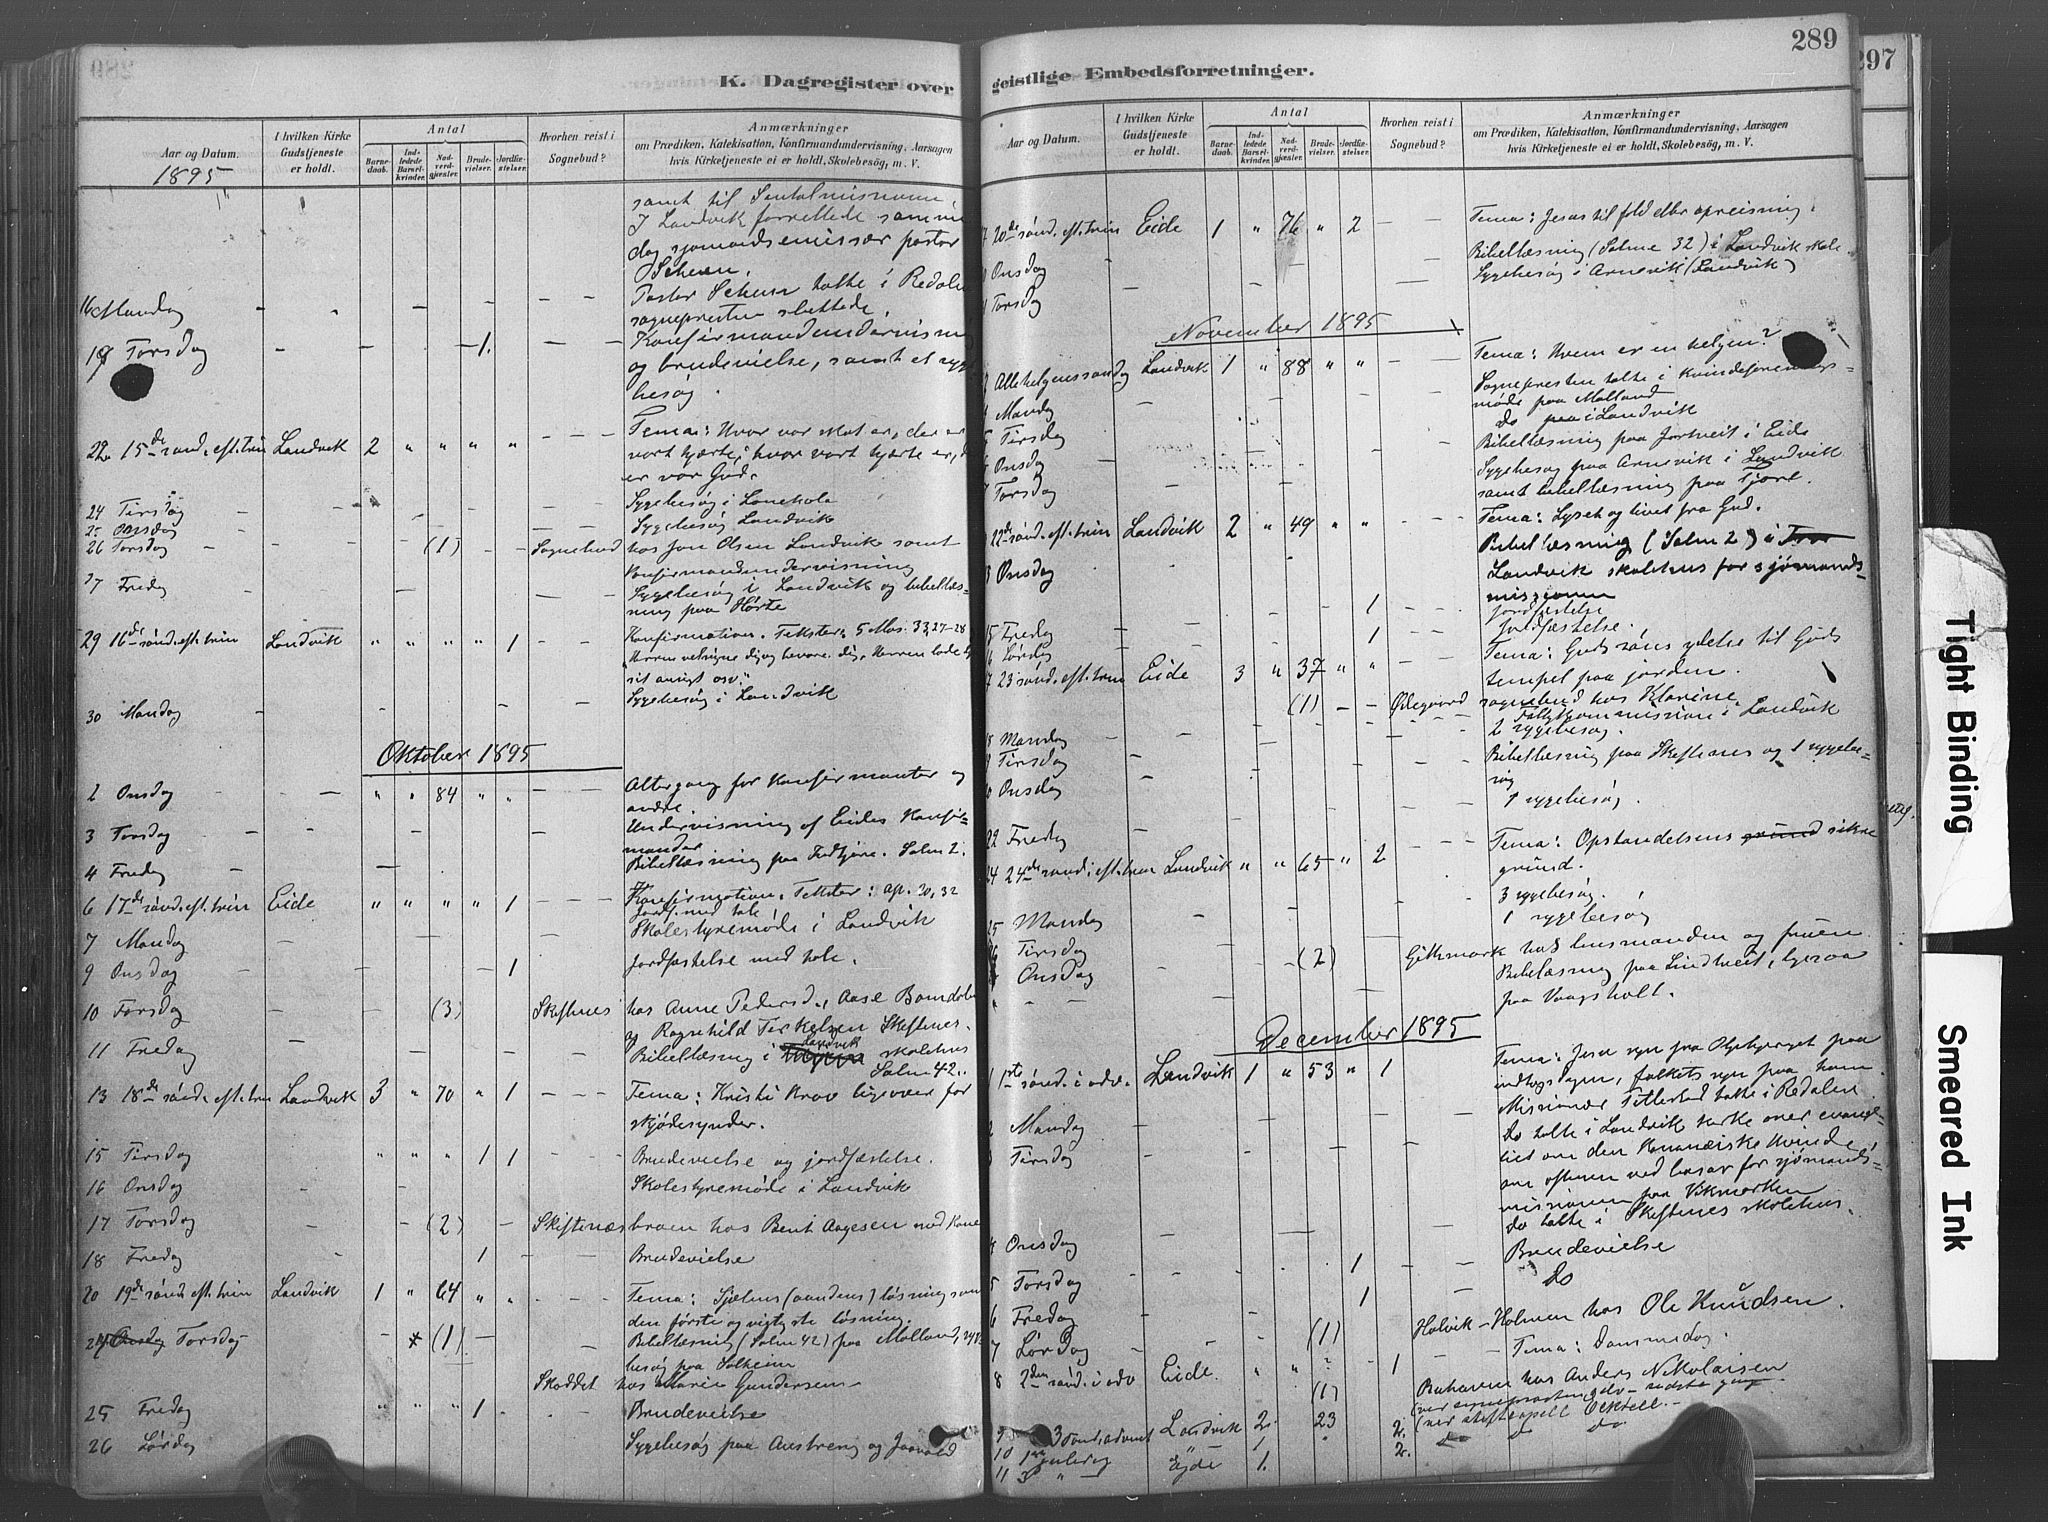 K. Dagregister over
Aar og Datum.
I hvilken Kirke Gudstjeneste er holdt.
Antal
Barnedaab.
Indledede Barselkvinder.
Nadverdgjæster.
Brudevielser.
Jordfæstelser.
Hvorhen reist i Sognebud?
Anmærkninger
om Prædiken, Katekisation, Konfirmandundervisning, Aarsagen
hvis Kirketjeneste ei er holdt, Skolebesög, m. V.
1895
samt til
I Landvik forrettede samme
dag sjømandsemissær pastor
16 Mandag
Pastor talte i Redalen
sognepresten
19 Torsdag 1.
Konfirmandundervisning
og brudevielse, samt et syge
besøg.
22 15de sønd. eft. trin Landvik 2 " " " "
Tema: Hvor vor skat er, der er
vort hjærte; hvor vort hjærte er, d
er vor Gud.
24 Tirsdag
Sygebesøg i
25 Onsdag
Sygebesøg Landvik
26 Torsdag (1) Sognebud
hos Jon Olsen Landvik samt
Konfirmandundervisning
27 Fredag
Sygebesøg i Landvik og bibellæs=
ning paa Hørte
29 16de sønd. eft. trin Landvik " " " " 1
Konfirmation. Tekster: 5 Mos. 33, 27-28
sit ansigt osv."
30 Mandag
Sygebesøg i Landvik
Oktober 1895
2 Onsdag " " 84 " "
Altergang for Konfirmanter og
andre.
3 Torsdag
Undervisning af Eides Konfir=
mander
4 Fredag
Bibellæsning paa Salm 2.
6 17de sønd. eft. trin Eide " " " " 1
Konfirmation. Tekster: Ap. 20, 32
Jordf. med tale
7 Mandag
Skolestyremøde i Landvik
9 Onsdag 1
Jordfæstelse med tale.
10 Torsdag (3) Skiftenes
hos Anne Pedersd., Aase
og Ragnhild Terkelsen Skiftenes.
11 Fredag
Bibellæsning i Landvik skolehus
Salm 42.
13 18de sønd. eft. trin Landvik 3 " 70 " 1
Tema: Kristi Krav ligeover for
skjødesynder.
15 Tirsdag " " " 1 1
Brudevielse og jordfæstelse.
16 Onsdag
Skolestyremøde i Landvik
17 Torsdag (2) Skiftenæs
hos Bent Aagesen med Kone
18 Fredag 1
Brudevielse
20 19de sønd. eft. trin Landvik 1 " 64 " "
Tema: Sjælens (aandens) løsning som
den første og vigtigste løsning.
24 Onsdag Torsdag (1)
Bibellæsning (Salm 42) paa Molland, syge
besøg paa Solheim
Skoddet hos Marie Gundersen
25 Fredag " " " 1
Brudevielse
26 Lørdag
Sygebesøg paa Austreng og
geistlige Embedsforretninger.
289
297
Aar og Datum.
I hvilken Kirke Gudstjeneste er holdt.
Antal
Barnedaab.
Indledede Barselkvinder.
Nadverdgjæster.
Brudevielser.
Jordfæstelser.
Hvorhen reist i Sognebud?
Anmærkninger
om Prædiken, Katekisation, Konfirmandundervisning, Aarsagen
hvis Kirketjeneste ei er holdt, Skolebesög, m. V.
20de sønd. eft. trin Eide 1 " 76 " 2
Tema: Jesus til fald eller opreisning.
Onsdag
Bibellæsning (Salme 32) i Landvik skole
Torsdag
Sygebesøg i Arnevik (Landvik)
November 1895
Allehelgenssøndag Landvik 1 " 88 " "
Tema: Hvem er en helgen?
Mandag
Sognepresten talte i Kvindeforenings=
møde paa Molland
Tirsdag
Do i Landvik
Onsdag
Bibellæsning paa i Eide
Torsdag
Sygebesøg paa Arnevik i Landvik
samt bibellæsning paa
22de sønd. eft. trin Landvik 2 " 49 " "
Tema: Lyset og livet fra Gud.
Onsdag
Bibellæsning (Salm 2) i
Landvik skolehus for sjømands=
missionen
15 Fredag 1
Jordfæstelse
Lørdag 1
Jordfæstelse.
23 sønd. eft. trin Eide 3 " 37 " "
Tema: Guds søns ydelse til Guds
tempel paa jorden.
(1) Ødegaard
sognebud hos Klarine
Mandag
kommission i Landvik
Tirsdag
2 sygebesøg.
Onsdag
Bibellæsning paa Skiftenes og 1 sygebe=
søg
22 Fredag
1 sygebesøg.
24 24de sønd. eft. trin Landvik " " 65 " 2
Tema: Opstandelsens grund sikre
grund.
25 Mandag
3 sygebesøg.
26 Tirsdag
1 sygebesøg
Onsdag (2)
hos lensmanden og fruen
Bibellæsning paa
paa Vaagsholt.
December 1895
1 1ste sønd. i adv. Landvik 1 " 53 " 1
Tema: Jesu syn fra Oljebjerget paa
indtogsdagen, folkets syn paa ham.
2 Mandag
Missionær talte i Redalen
3 Tirsdag
Do talte i Landvik kirke over evange=
liet om den Kananæiske kvinde,
om aftenen ved basar for sjømands=
missionen paa Vikmarken
4 Onsdag
Do talte i Skiftenes skolehus.
5 Torsdag 1
Brudevielse
6 Fredag 1
Do
7 Lørdag (1)
Holvik - Holmen hos Ole Knudsen.
8 2den sønd. i adv Eide. " " ? 1
Tema: Dommedag.
(1)
hos Anders Nikolaisen
9 3 sønd. advent Landvik 2. 23 2.
10 1 juledag 1. 2.
11 Ejde 1.
Tight Binding
Smeared Ink